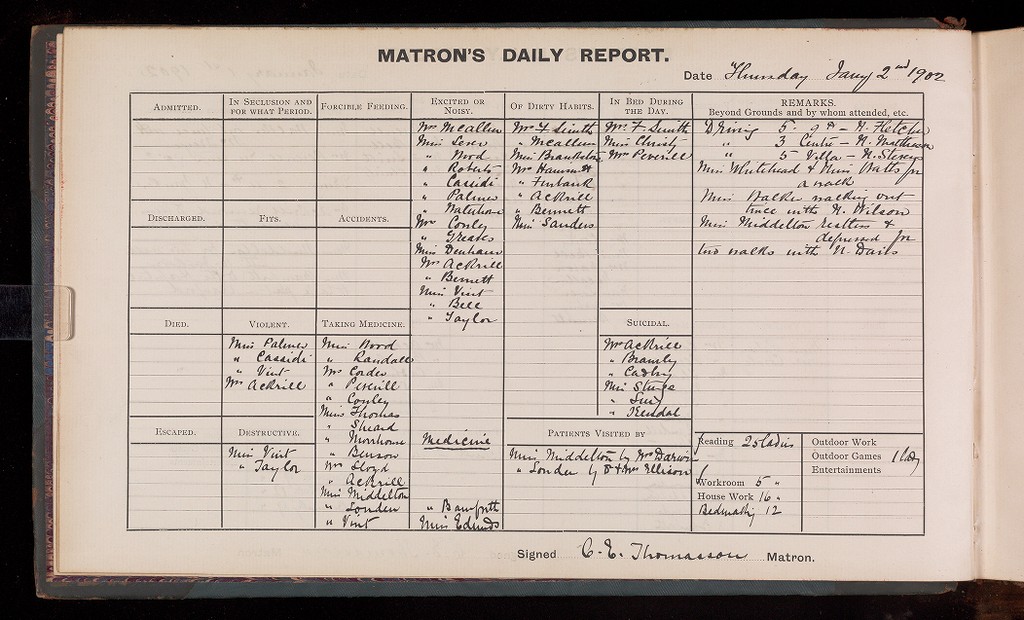 MATRON'S DAILY REPORT.
Date Thursday Jany 2nd 1902
ADMITTED.
IN SECLUSION AND FOR WHAT PERIOD.
FORCIBLE FEEDING.
EXCITED OR NOISY.
Mrs McCallum
Miss
" Wood
" Roberts
" Cassidi
" Palmer
"
Mrs Conley
" Greaves
Miss Denham
Mrs Ackrill
" Bennett
Miss Vint
" Bell
" Taylor
OF DIRTY HABITS.
Mrs F Smith
" McCallum
Miss
Mrs
"
" Ackrill
" Bennett
Miss Sanders
IN BED DURING THE DAY.
Mrs F Smith
Miss Christy
Mrs Peverill
REMARKS.
Beyond Grounds and by whom attended, etc.
Driving 5. – N. Fletcher
" 3 Centre – N. Matheson
" 5 Villa – N.
Miss Whitehead & Miss Watts for
a walk
Miss Walker walking out
twice with N. Wilson
Miss Middelton restless &
depressed for
two walks with N. Davis
DISCHARGED.
FITS.
ACCIDENTS.
DIED.
VIOLENT.
Miss Palmer
" Cassidi
" Vint
Mrs Ackrill
TAKING MEDICINE.
Miss Wood
" Randall
Mrs Corder
" Peverill
" Conley
Miss Thomas
" Sheard
" Morehouse
" Benson
Mrs Lloyd
" Ackrill
Miss Middelton
" Londer
" Vint
Medicine
" Bamforth
Miss Edmds
SUICIDAL.
Mrs Ackrill
" Bramly
" Cadby
Miss Sturge
"
" Kendal
ESCAPED.
DESTRUCTIVE.
Miss Vint
" Taylor
PATIENTS VISITED BY
Miss Middelton by Mrs Darwin
" Londer by Dr & Mrs Ellison
Reading 25 ladies
Workroom 5 "
House Work 16 "
Bedmaking 12
Outdoor Work
Outdoor Games 1 lady
Entertainments
Signed C. E. Thomasson Matron.